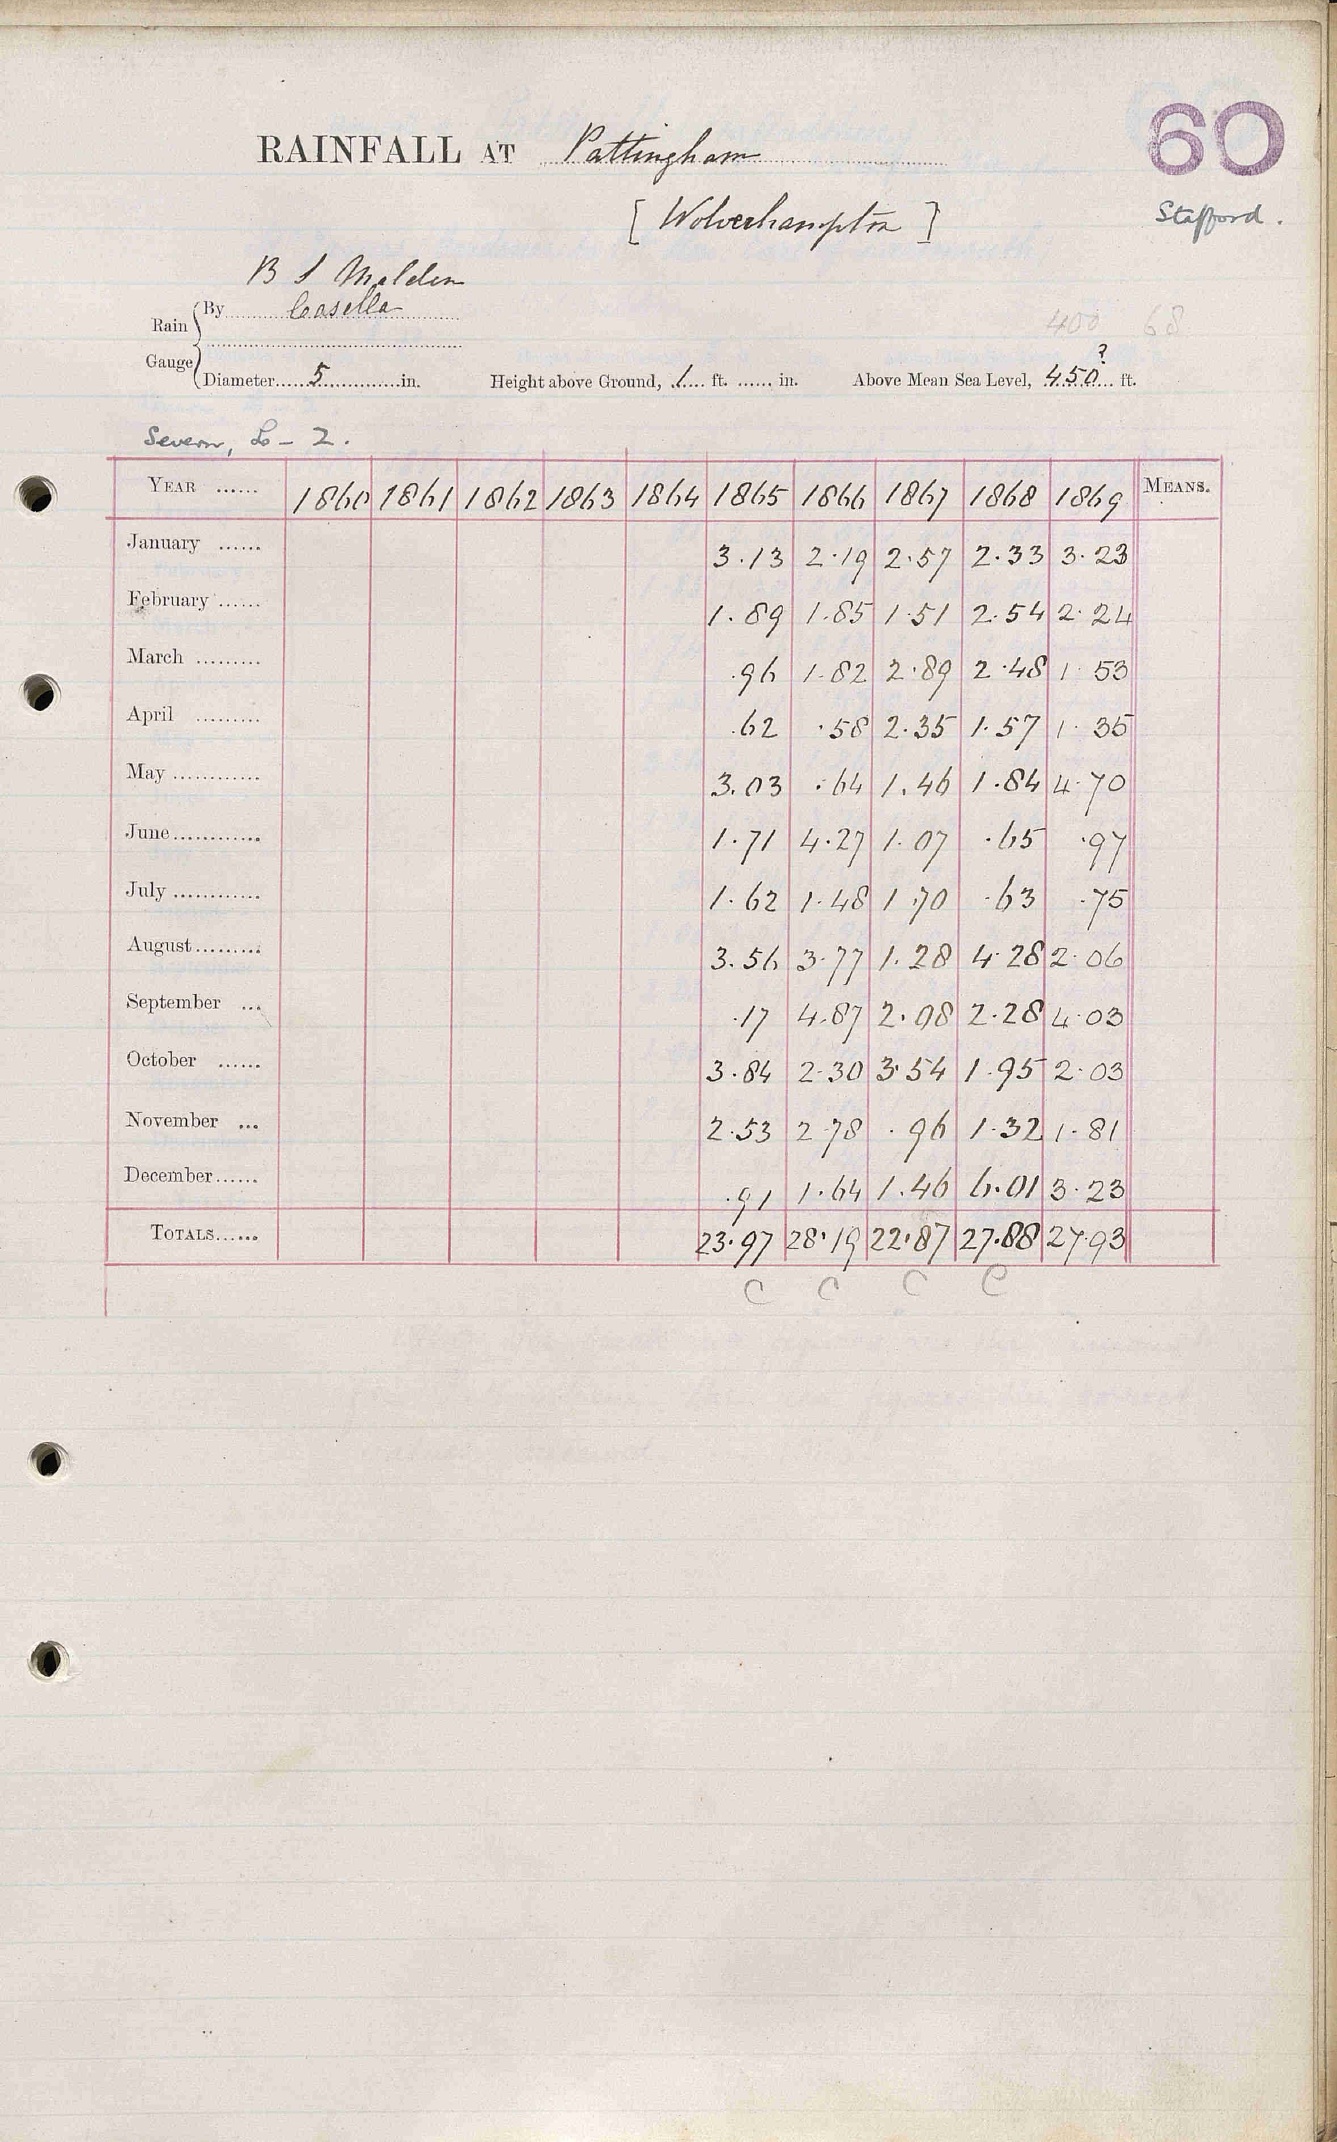 60
RAINFALL AT Pattingham
[Wolverhampton]
Stafford.
B S Malden
Rain Gauge
By Casella
400 68
Diameter......5.............in. Height above Ground, 1.... ft. ...... in. Above Mean Sea Level, 450?... ft.
Severn, L - 2.
YEAR ...... 1860 1861 1862 1863 1864 1865 1866 1867 1868 1869 MEANS.
January ...... 3.13 2.19 2.57 2.33 3.23
February ...... 1.89 1.85 1.51 2.54 2.24
March ......... .96 1.82 2.89 2.48 1.53
April ......... .62 .58 2.35 1.57 1.35
May ............ 3.03 .64 1.46 1.84 4.70
June............ 1.71 4.27 1.07 .65 .97
July ............ 1.62 1.48 1.70 .63 .75
August......... 3.56 3.77 1.28 4.28 2.06
September ... .17 4.87 2.08 2.28 4.03
October ...... 3.84 2.30 3.54 1.95 2.03
November ... 2.53 2.78 .96 1.32 1.81
December...... .91 1.64 1.46 6.01 3.23
TOTALS...... 23.97 28.19 22.87 27.88 27.93
C C C C